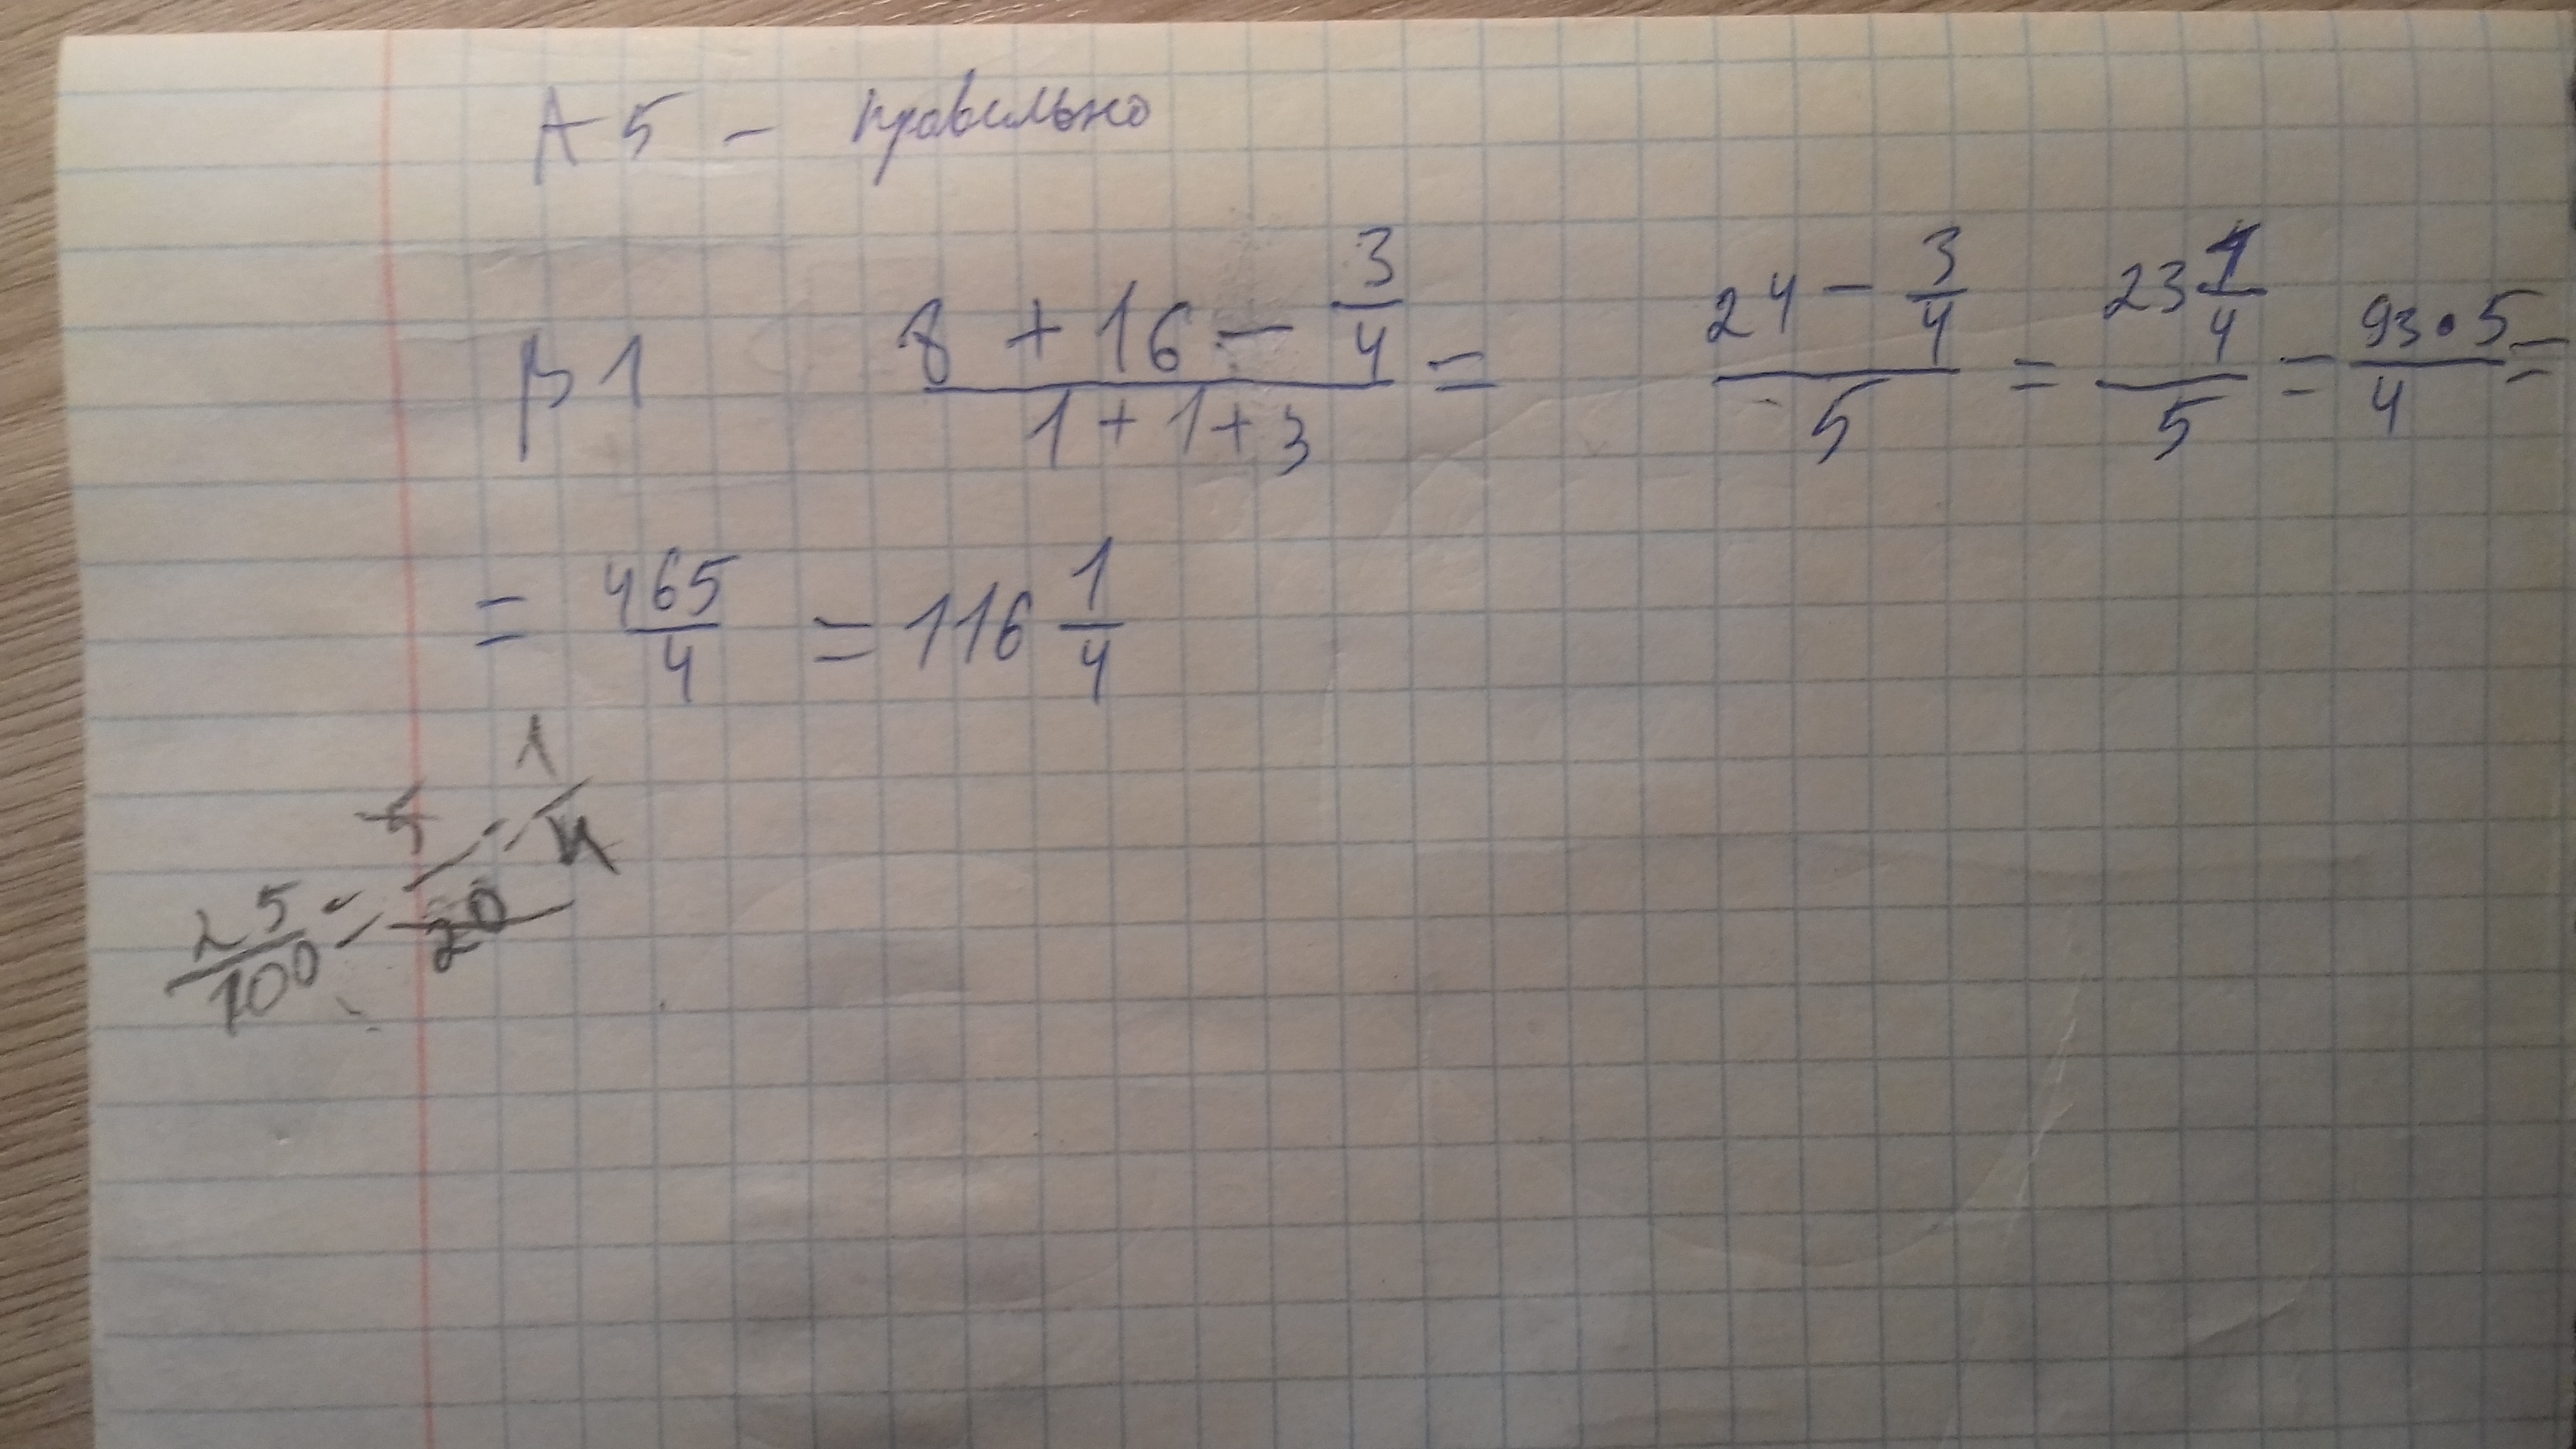 А5 – правильно
В1 (8 + 16 – 3/4)/(1 + 1 + 3) = (24 – 3/4)/5 = (23 1/4)/5 = (93 · 5)/4 =
= 465/4 = 116 1/4
25/100 = 5/20 = 1/4